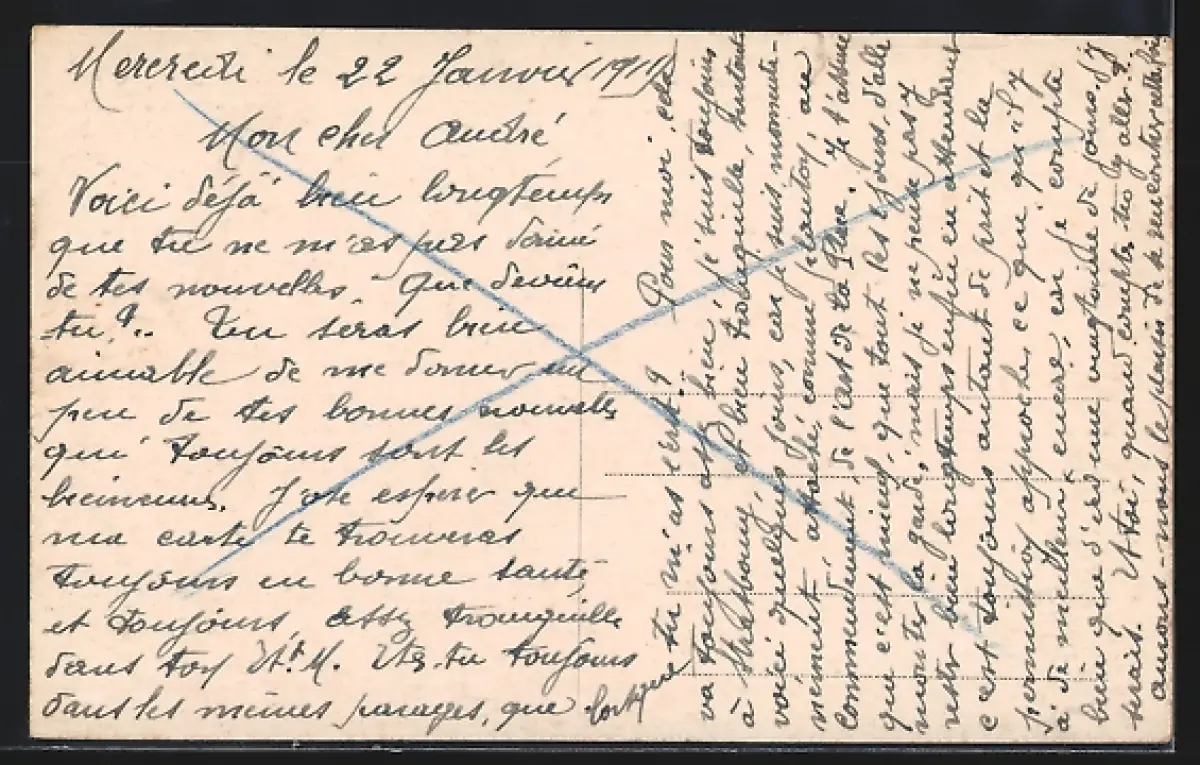 Mercredi le 22 Janvier 1919
Mon cher André
Voici déjà bien longtemps
que tu ne m'as pas donné
de tes nouvelles. Que deviens
-tu?.. Tu seras bien
aimable de me donner un
peu de tes bonnes nouvelles
qui toujours sont les
bienvenues. J'ose espérer que
ma carte te trouveras
toujours en bonne santé,
et toujours assez tranquille
dans ton Et.M. Etes-tu toujours
dans les mêmes parages, que lorsque
tu m'as écrit? Pour moi, cela
va toujours assez bien, je suis toujours
à Strasbourg, et bien tranquille, surtout
voici quelques jours, car je suis momenta-
nément attaché, comme planton, au
Commandement de l'art de la Place. Je t'assure
que c'est mieux, que tout les jours, d'alle
monter la garde, mais je ne pense pas y
rester bien longtemps, enfin en attendant
c'est toujours autant de prit et la
permission approche, ce que, qu'il y
a de meilleur encore, car je compte
bien que d'ici une vingtaine de jours, j'y
serais. Et toi, quand comptes-tu y aller?
aurons-nous le plaisir de se rencontrer cette fois